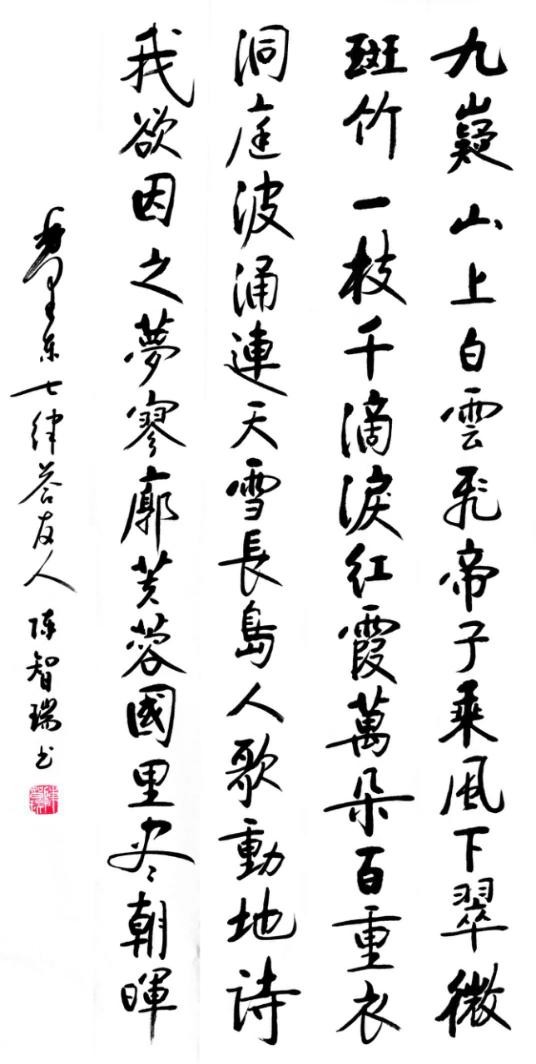 九嶷山上白雲飛帝子乘風下翠微
斑竹一枝千滴淚紅霞萬朵百重衣
洞庭波涌連天雪長島人歌動地詩
我欲因之夢寥廓芙蓉國里尽朝暉
东七律答友人 陈智瑞书